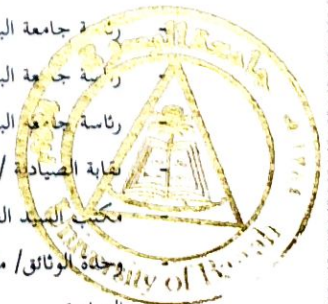 - رئاسة جامعة الب
- رئاسة جامعة الب
- رئاسة جامعة الب
- نقابة الصيادلة /
- مكتب السيد ال
- وحدة الوثائق/ م
University of Basrah